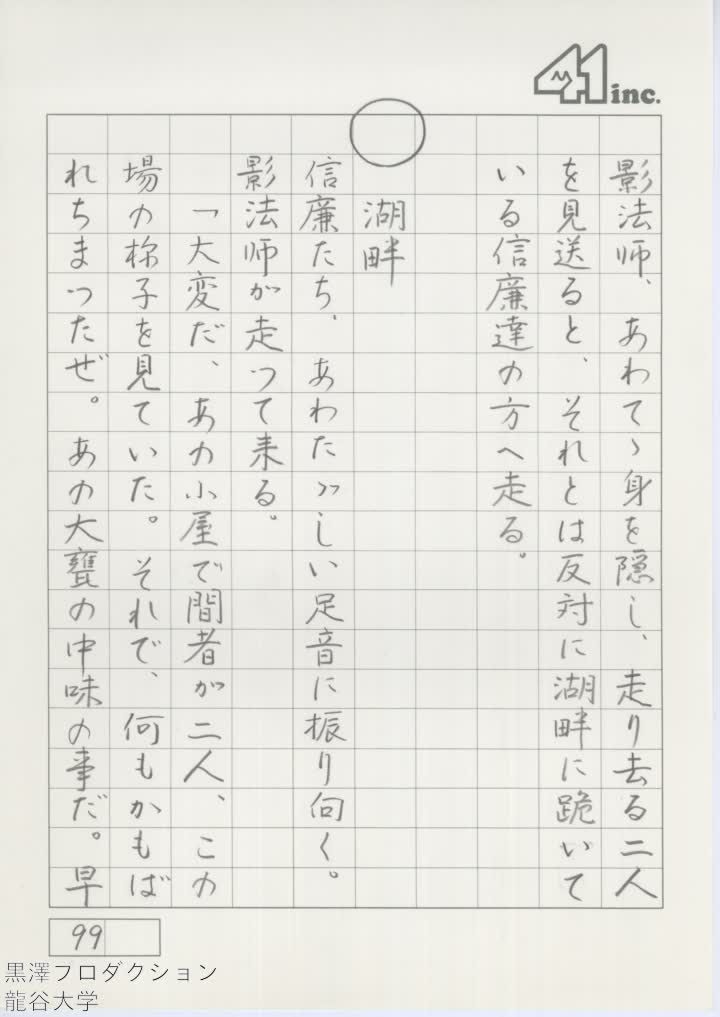 41 inc.
影法師、あわてゝ身を隠し、走り去る二人
を見送ると、それとは反対に湖畔に跪いて
いる信廉達の方へ走る。
○ 湖畔
信廉たち、あわたゞしい足音に振り向く。
影法師が走って来る。
「大変だ、あの小屋で間者が二人、この
場の様子を見ていた。それで、何もかもば
れちまったぜ。あの大甕の中味の事だ。早
99
黒澤プロダクション
龍谷大学